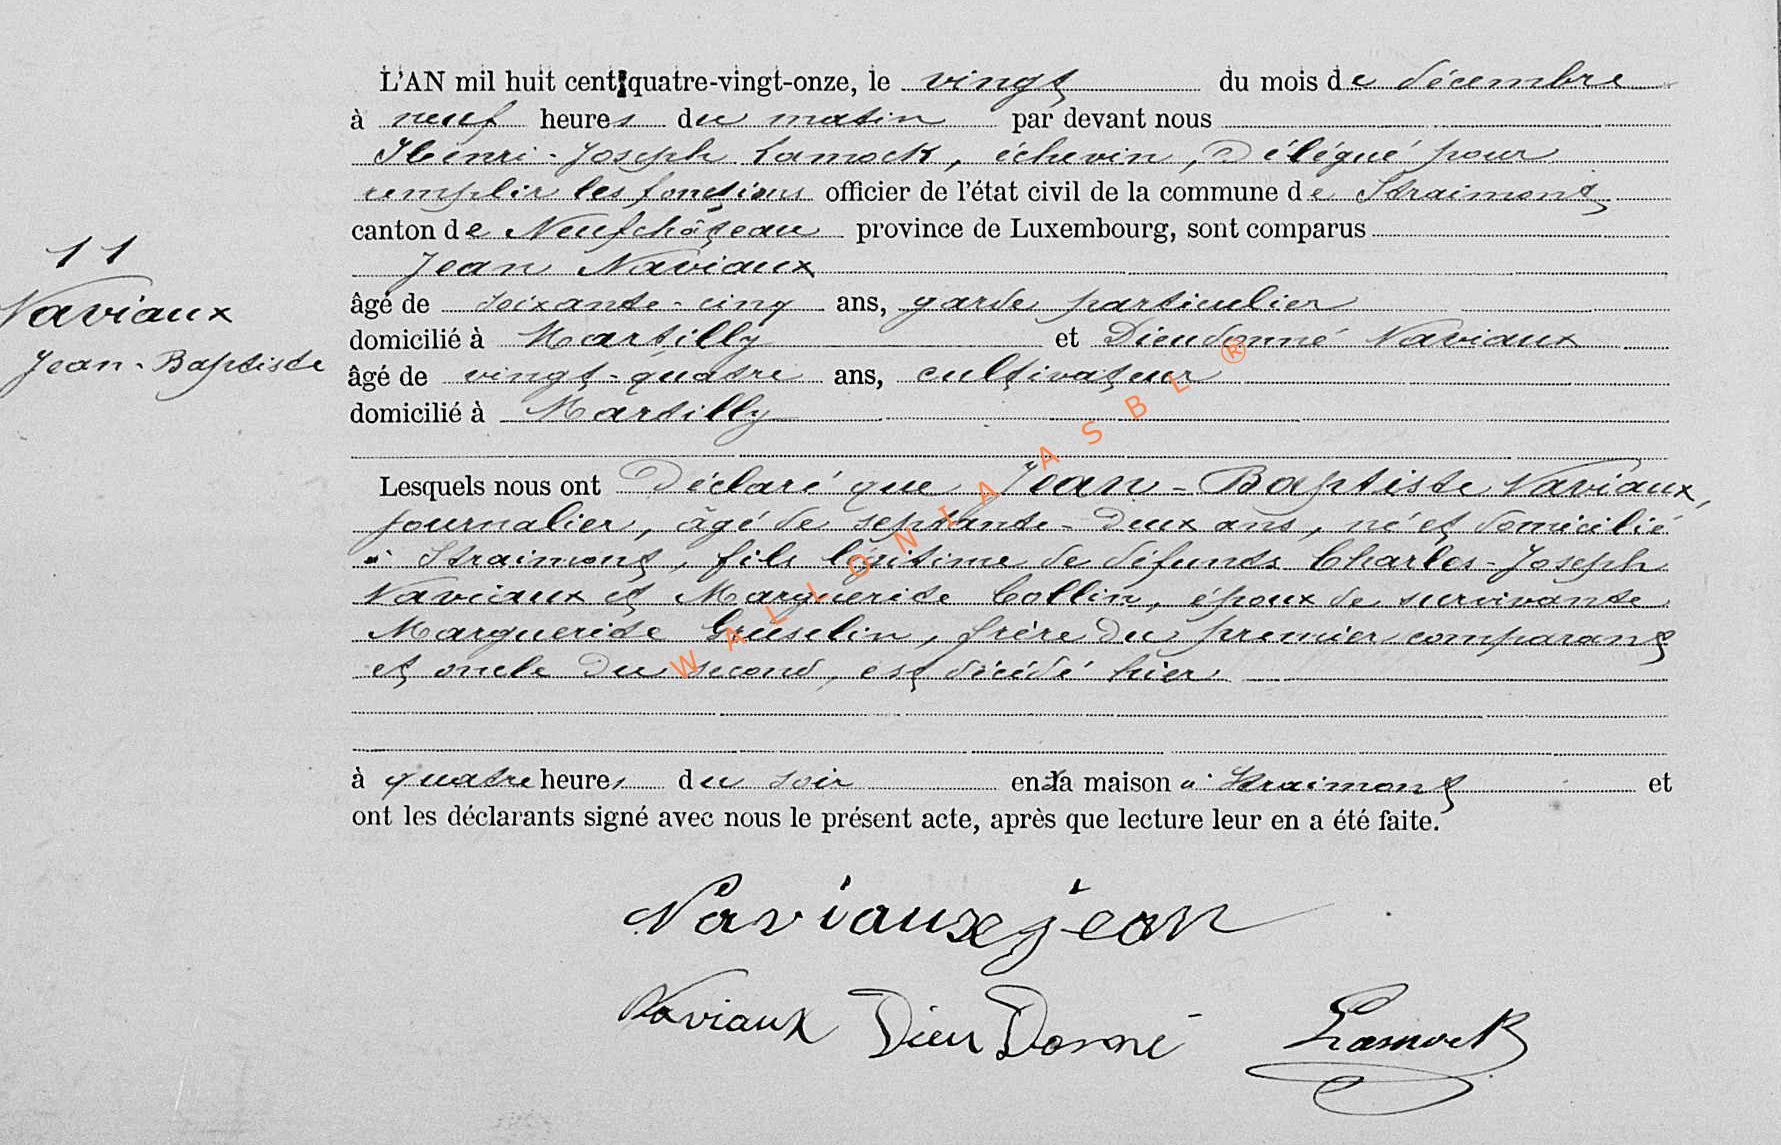 L'AN mil huit cent quatre-vingt-onze, le vingt du mois de décembre
à neuf heures du matin par devant nous
Henri-Joseph Lamock, échevin, Délégué pour
remplir les fonctions officier de l'état civil de la commune de Straimont
canton de Neufchâteau province de Luxembourg, sont comparus
11
Jean Naviaux
Naviaux
âgé de soixante-cinq ans, garde particulier
domicilié à Martilly et Dieudonné Naviaux
Jean-Baptiste
âgé de vingt-quatre ans, cultivateur
domicilié à Martilly
Lesquels nous ont Déclaré que Jean-Baptiste Naviaux,
journalier, âgé de septante-deux ans, né et domicilié
à Straimont, fils légitime de défunts Charles-Joseph
Naviaux et Marguerite Collin, époux de survivante
Marguerite Gruselin, frère du premier comparant
et oncle du second, est décédé hier
à quatre heures du soir en sa maison à Straimont et
ont les déclarants signé avec nous le présent acte, après que lecture leur en a été faite.
Naviaux jean
Naviaux Dieu Donné Lamock
WALLONIA ASBL ®